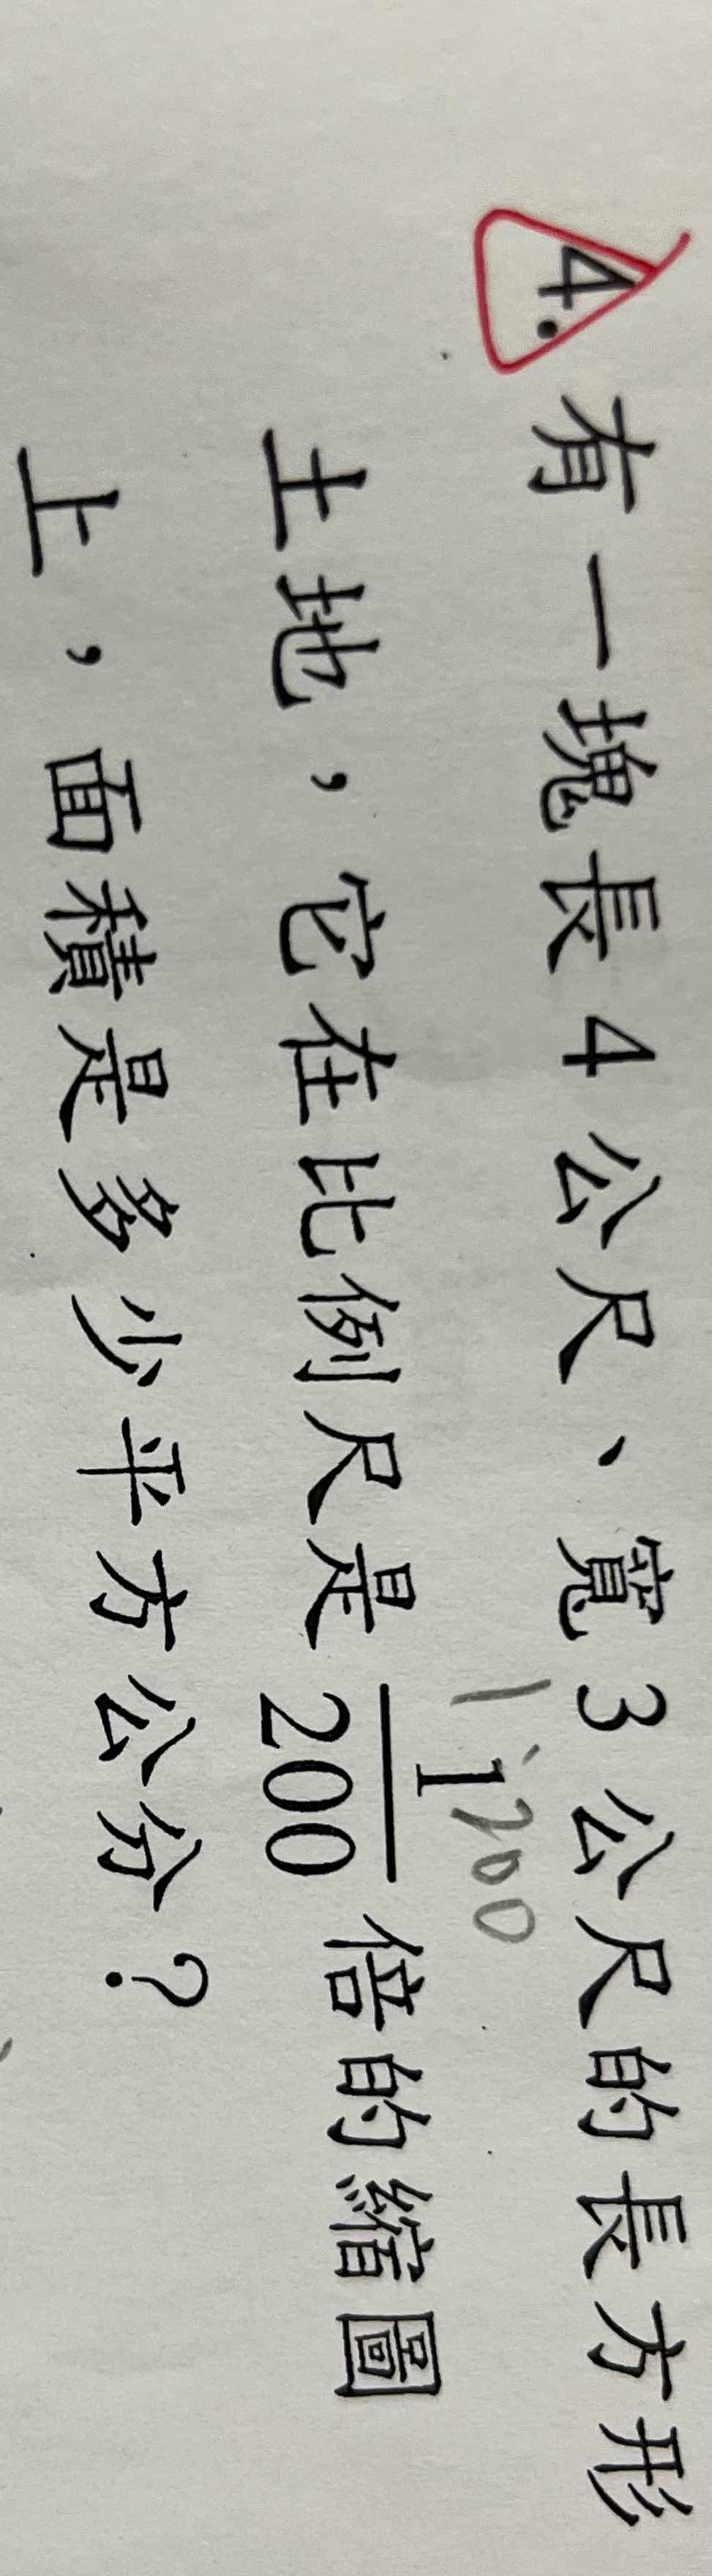 4. 有一塊長4公尺、寬3公尺的長方形
1:200
土地，它在比例尺是 1/200 倍的縮圖
上，面積是多少平方公分？